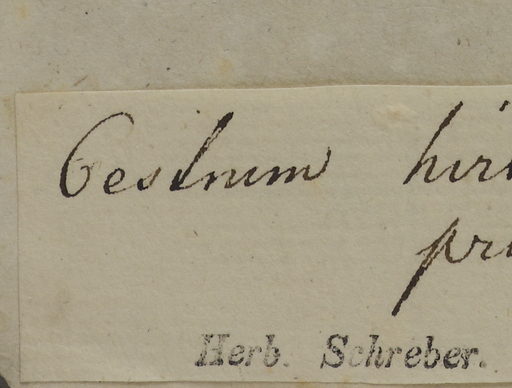 Cestrum hir
pri
Herb. Schreber.